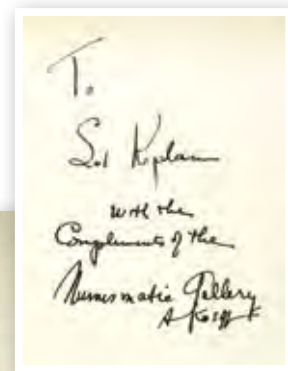 To
Sol Kaplan
with the
Compliments of the
Numismatic Gallery
A Kosoff